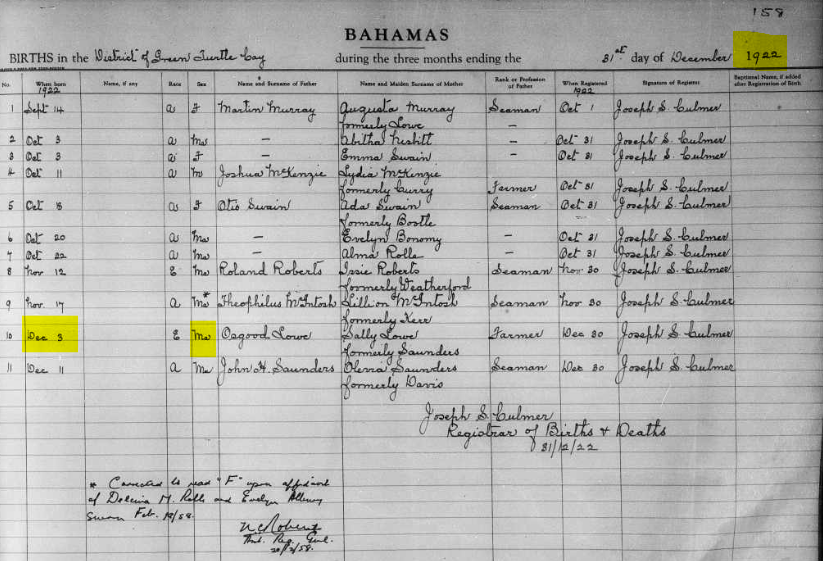 158
BAHAMAS
BIRTHS in the District of Green Turtle Cay during the three months ending the 31st day of December 1922
No. When born 1922 Name, if any Race Sex Name and Surname of Father Name and Maiden Surname of Mother Rank or Profession of Father When Registered 1922 Signature of Registrar Baptismal Name, if added after Registration of Birth
1 Sept 14 a F Martin Murray Augusta Murray Seaman Oct 1 Joseph S. Culmer
formerly Lowe
2 Oct 3 a M — Abitha Nesbitt — Oct 31 Joseph S. Culmer
3 Oct 3 a F — Emma Swain — Oct 31 Joseph S. Culmer
4 Oct 11 a M Joshua McKenzie Lydia McKenzie
formerly Curry Farmer Oct 31 Joseph S. Culmer
5 Oct 8 a F Otis Swain Ada Swain Seaman Oct 31 Joseph S. Culmer
formerly Bostle
6 Oct 20 a M — Evelyn Bonomy — Oct 31 Joseph S. Culmer
7 Oct 22 a M — Alma Rolle — Oct 31 Joseph S. Culmer
8 Nov 12 E M Roland Roberts Issie Roberts Seaman Nov 30 Joseph S. Culmer
formerly Weatherford
9 Nov. 17 a M* Theophilus McIntosh Lillion McIntosh Seaman Nov 30 Joseph S. Culmer
formerly Kerr
10 Dec 3 E M Osgood Lowe Sally Lowe Farmer Dec 30 Joseph S. Culmer
formerly Saunders
11 Dec 11 a M John H. Saunders Olevia Saunders Seaman Dec 30 Joseph S. Culmer
formerly Davis
Joseph S. Culmer
Registrar of Births & Deaths
31/12/22
* Corrected to read "F" upon affidavit
of M. Rolle and Evelyn
Swain Feb.
Reg. Genl.
20/2/58.